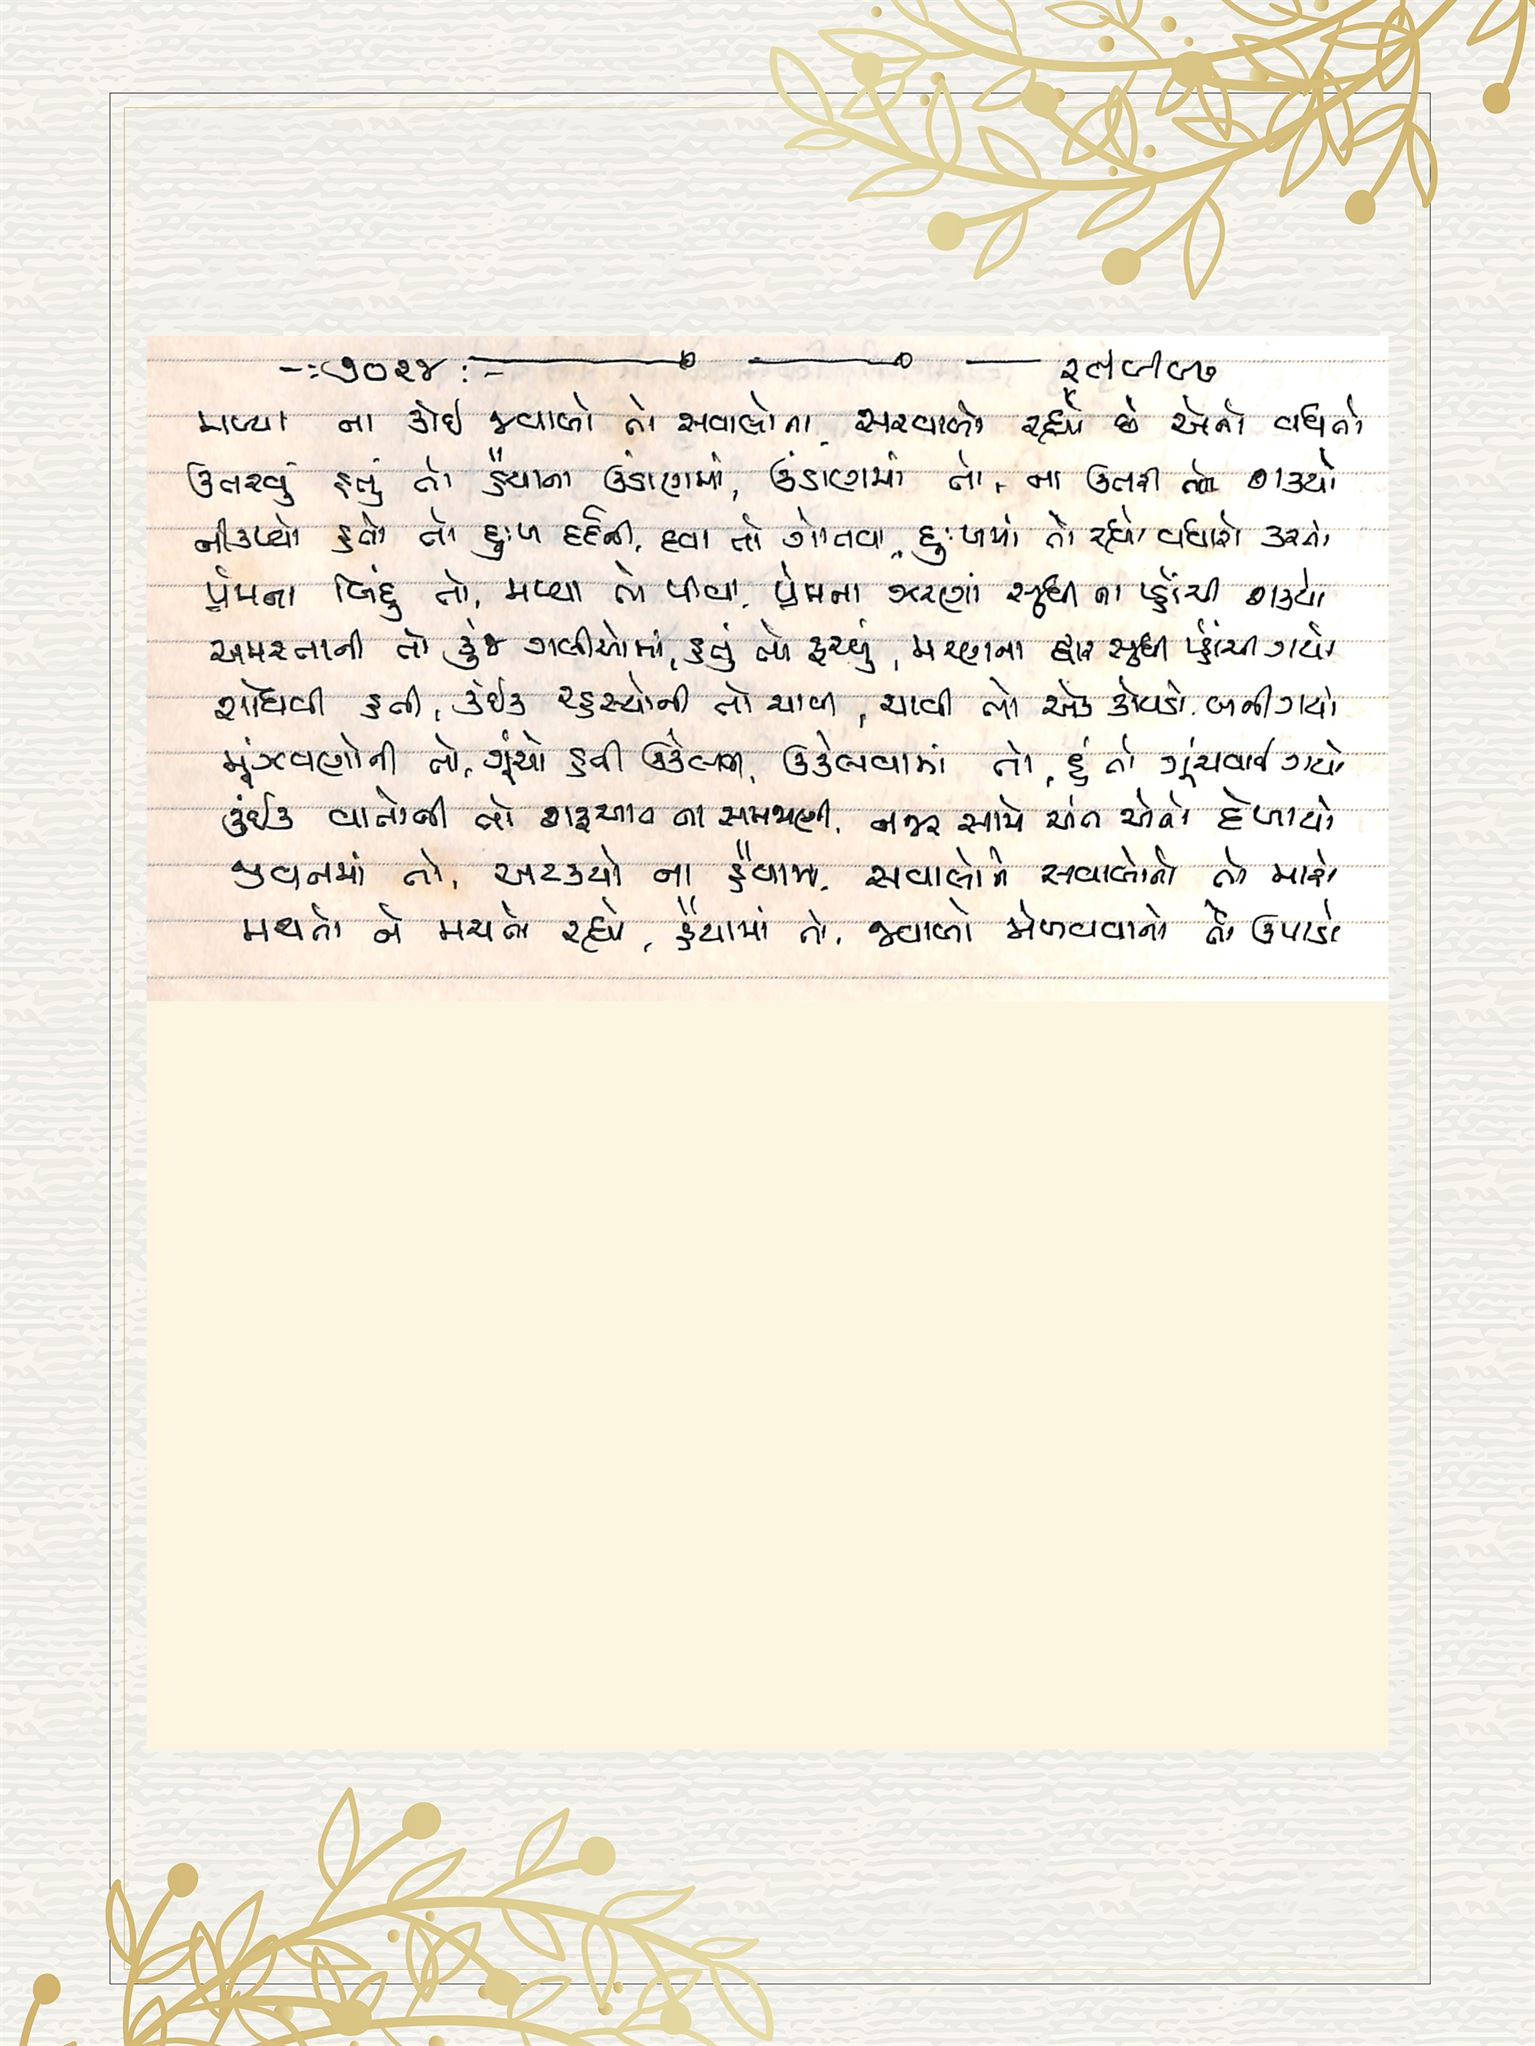 -:૭૦૨૪:-
મળ્યા ના કોઈ જવાબો તો સવાલોના, સરવાળો રહ્યો છે એનો વધતો
ઉતરવું હતું તો હૈયાના ઉંડાણમાં, ઉંડાણમાં તો, ના ઉતરી શક્યો
નીકળ્યો હતો તો દુઃખ દર્દની, દવા તો ગોતવા, દુઃખમાં તો રહ્યો વધારો કરતો
પ્રેમના બિંદુ તો, મળ્યા તો પીવા, પ્રેમના ઝરણાં સુધી ના પ્હોંચી શક્યો
અમરતાની તો કુંજ ગલીઓમાં, હતું તો ફરવું, મરણના દ્વાર સુધી પ્હોંચી ગયો
શોધવી હતી, કંઈક રહસ્યોની તો ચાવી, ચાવી તો એક કોયડો બની ગયો
મૂંઝવણોની તો, ગૂંચો હતી ઉકેલવી, ઉકેલવામાં તો, હું તો ગૂંચવાઈ ગયો
કંઈક વાતોની તો શરૂઆત ના સમજાણી, નજર સામે અંત એનો દેખાયો
જીવનમાં તો, અટક્યો ના હૈયામાં, સવાલોને સવાલોનો તો મારો
મથતો ને મથતો રહ્યો, હૈયામાં તો, જવાબો મેળવવાનો તો ઉપાડો